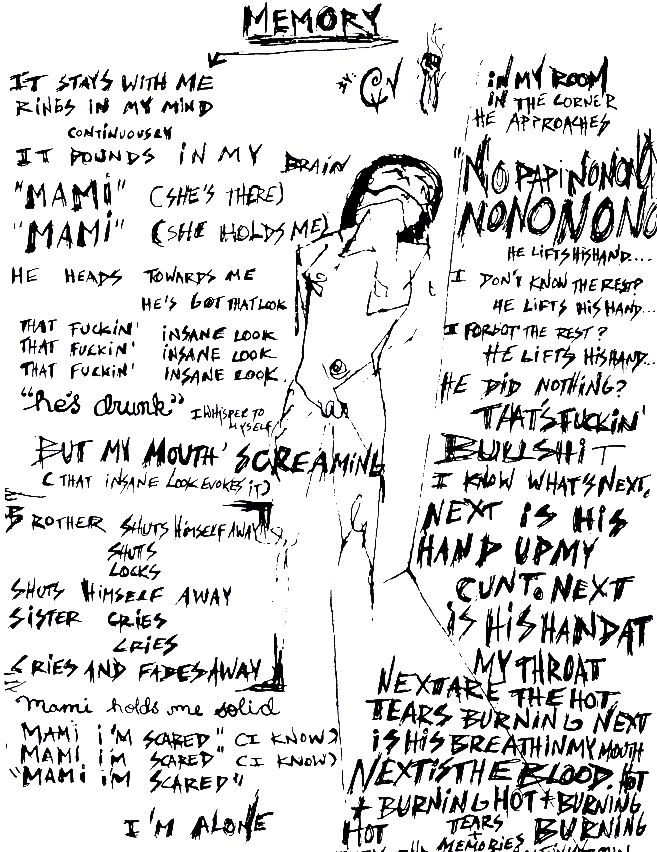 MEMORY
BY: CV
IT STAYS WITH ME
RINES IN MY MIND
CONTINUOUSLY
IT POUNDS IN MY BRAIN
"MAMi" (SHE'S THERE)
"MAMi" (SHE HOLDS ME)
HE HEADS TOWARDS ME
HE'S GOT THAT LOOK
THAT FUCKIN' INSANE LOOK
THAT FUCKIN' INSANE LOOK
THAT FUCKIN' INSANE LOOK
"he's drunk" I WHISPER TO
MYSELF
BUT MY MOUTH' SCREAMING
(THAT INSANE LOOK EVOKES IT)
BROTHER SHUTS HIMSELF AWAY
SHUTS
LOCKS
SHUTS HIMSELF AWAY
SISTER CRIES
CRIES
CRIES AND FADES AWAY
Mami holds me solid
"MAMi i'M SCARED" (I KNOW)
"MAMi i'M SCARED" (I KNOW)
"MAMi i'M SCARED"
I'M ALONE
iN MY ROOM
iN THE CORNER
HE APPROACHES
"NO PAPi NONONO
NONONONO
HE LIFTS HIS HAND...
I DON'T KNOW THE REST?
HE LIFTS HIS HAND...
I FORGOT THE REST?
HE LIFTS HIS HAND...
HE DID NOTHING?
THAT'S FUCKIN'
BULLSHIT
I KNOW WHAT'S NEXT.
NEXT iS HiS
HAND UP MY
CUNT. NEXT
iS HiS HAND AT
MY THROAT
NEXT ARE THE HOT
TEARS BURNING NEXT
iS HiS BREATH IN MY MOUTH
NEXT iS THE BLOOD. HOT
+ BURNING HOT + BURNING
HOT TEARS + BURNING
MEMORIES